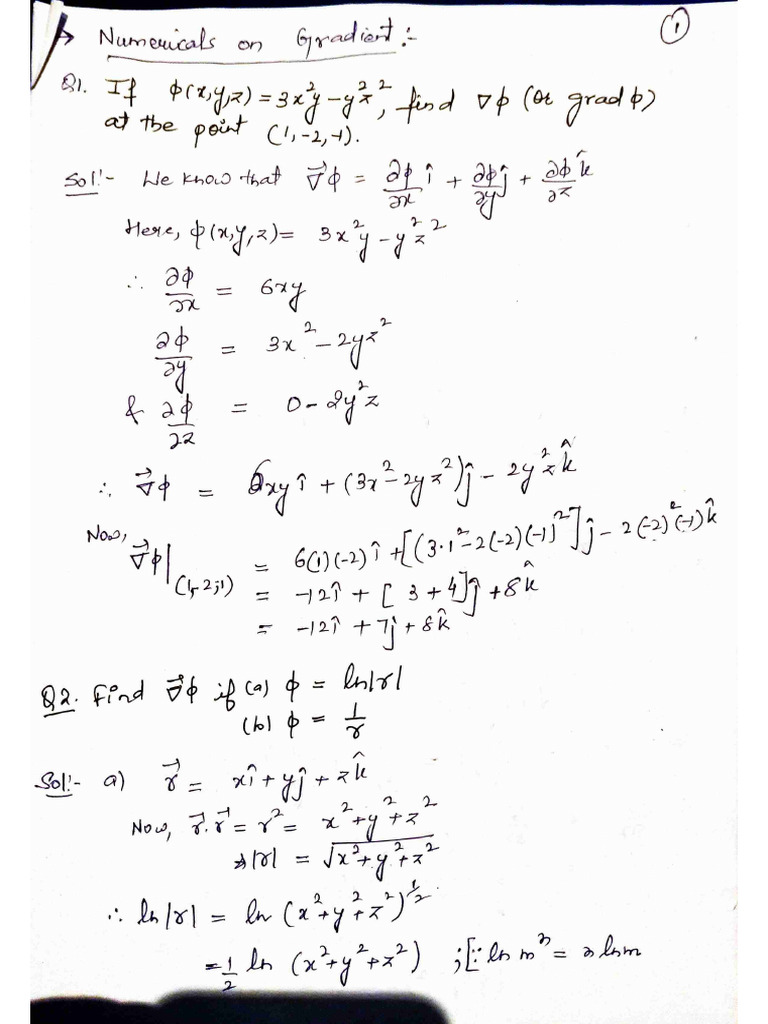 → Numericals on Gradient :-
①
Q1. If ϕ(x,y,z) = 3x²y - y²z², find ∇ϕ (or grad ϕ)
at the point (1,-2,-1).
Sol:- We know that ∇⃗ϕ = ∂ϕ/∂x î + ∂ϕ/∂y ĵ + ∂ϕ/∂z k̂
Here, ϕ(x,y,z) = 3x²y - y²z²
∴ ∂ϕ/∂x = 6xy
∂ϕ/∂y = 3x² - 2yz²
& ∂ϕ/∂z = 0 - 2y²z
∴ ∇⃗ϕ = 6xy î + (3x² - 2yz²)ĵ - 2y²z k̂
Now, ∇⃗ϕ|(1,-2,-1) = 6(1)(-2) î + [(3·1² - 2(-2)(-1)²]ĵ - 2(-2)²(-1) k̂
= -12î + [3+4]ĵ + 8k̂
= -12î + 7ĵ + 8k̂
Q2. Find ∇⃗ϕ if (a) ϕ = ln|r|
(b) ϕ = 1/r
Sol:- a) r⃗ = xî + yĵ + zk̂
Now, r⃗.r⃗ = r² = x² + y² + z²
⇒ |r| = √x² + y² + z²
∴ ln|r| = ln (x² + y² + z²)^1/2
= 1/2 ln (x² + y² + z²) ; [∵ ln mⁿ = n ln m